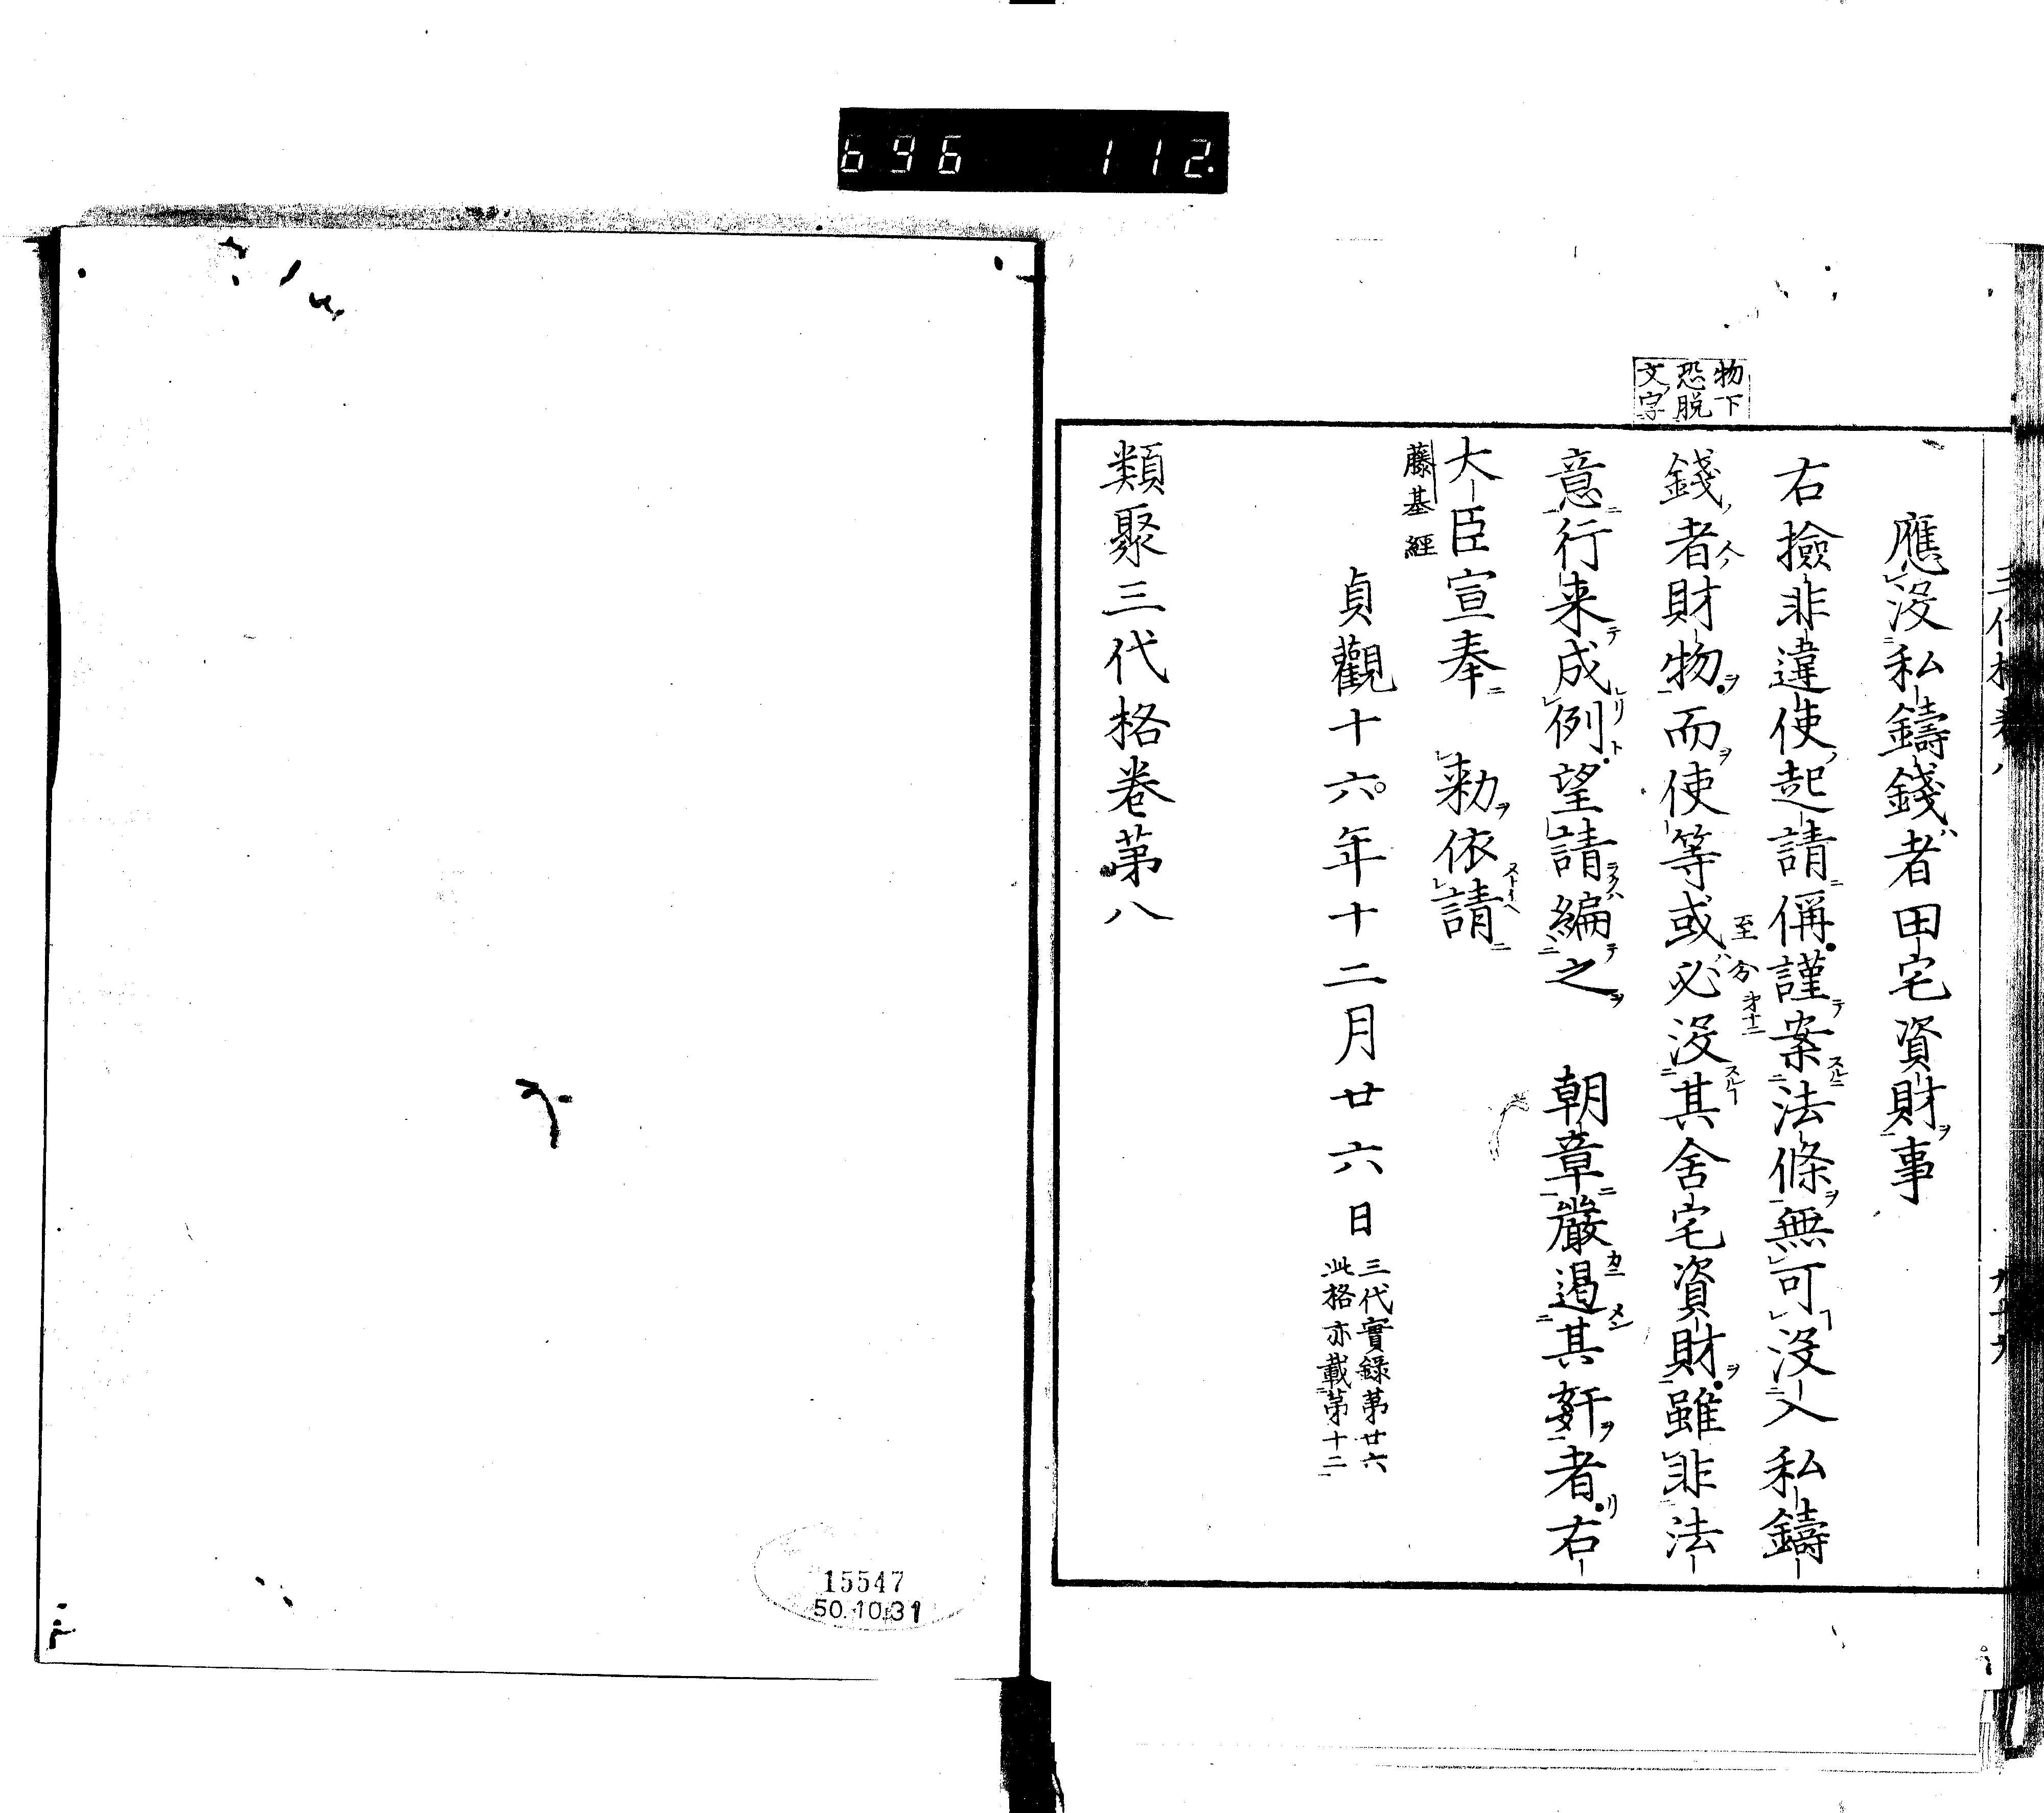 696 112.
物下
恐脱
文字
應没私鑄錢者田宅資財事
右撿非違使起請偁謹案法條無可没入私鑄
錢者財物而使等或必没其舍宅資財雖非法
至
意行来成例望請編之 朝章嚴遏其奸者右
大臣宣奉 勅依請
藤基經
貞觀十六年十二月廿六日
三代實録第廿六
此格亦載第十二
類聚三代格卷第八
15547
50.10.31